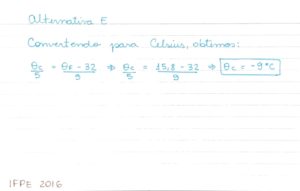 Alternativa E
Convertendo para Celsius, obtemos:
θc/5 = θF - 32/9 ⇒ θc/5 = 15,8 - 32/9 ⇒ θc = -9°C
IFPE 2016